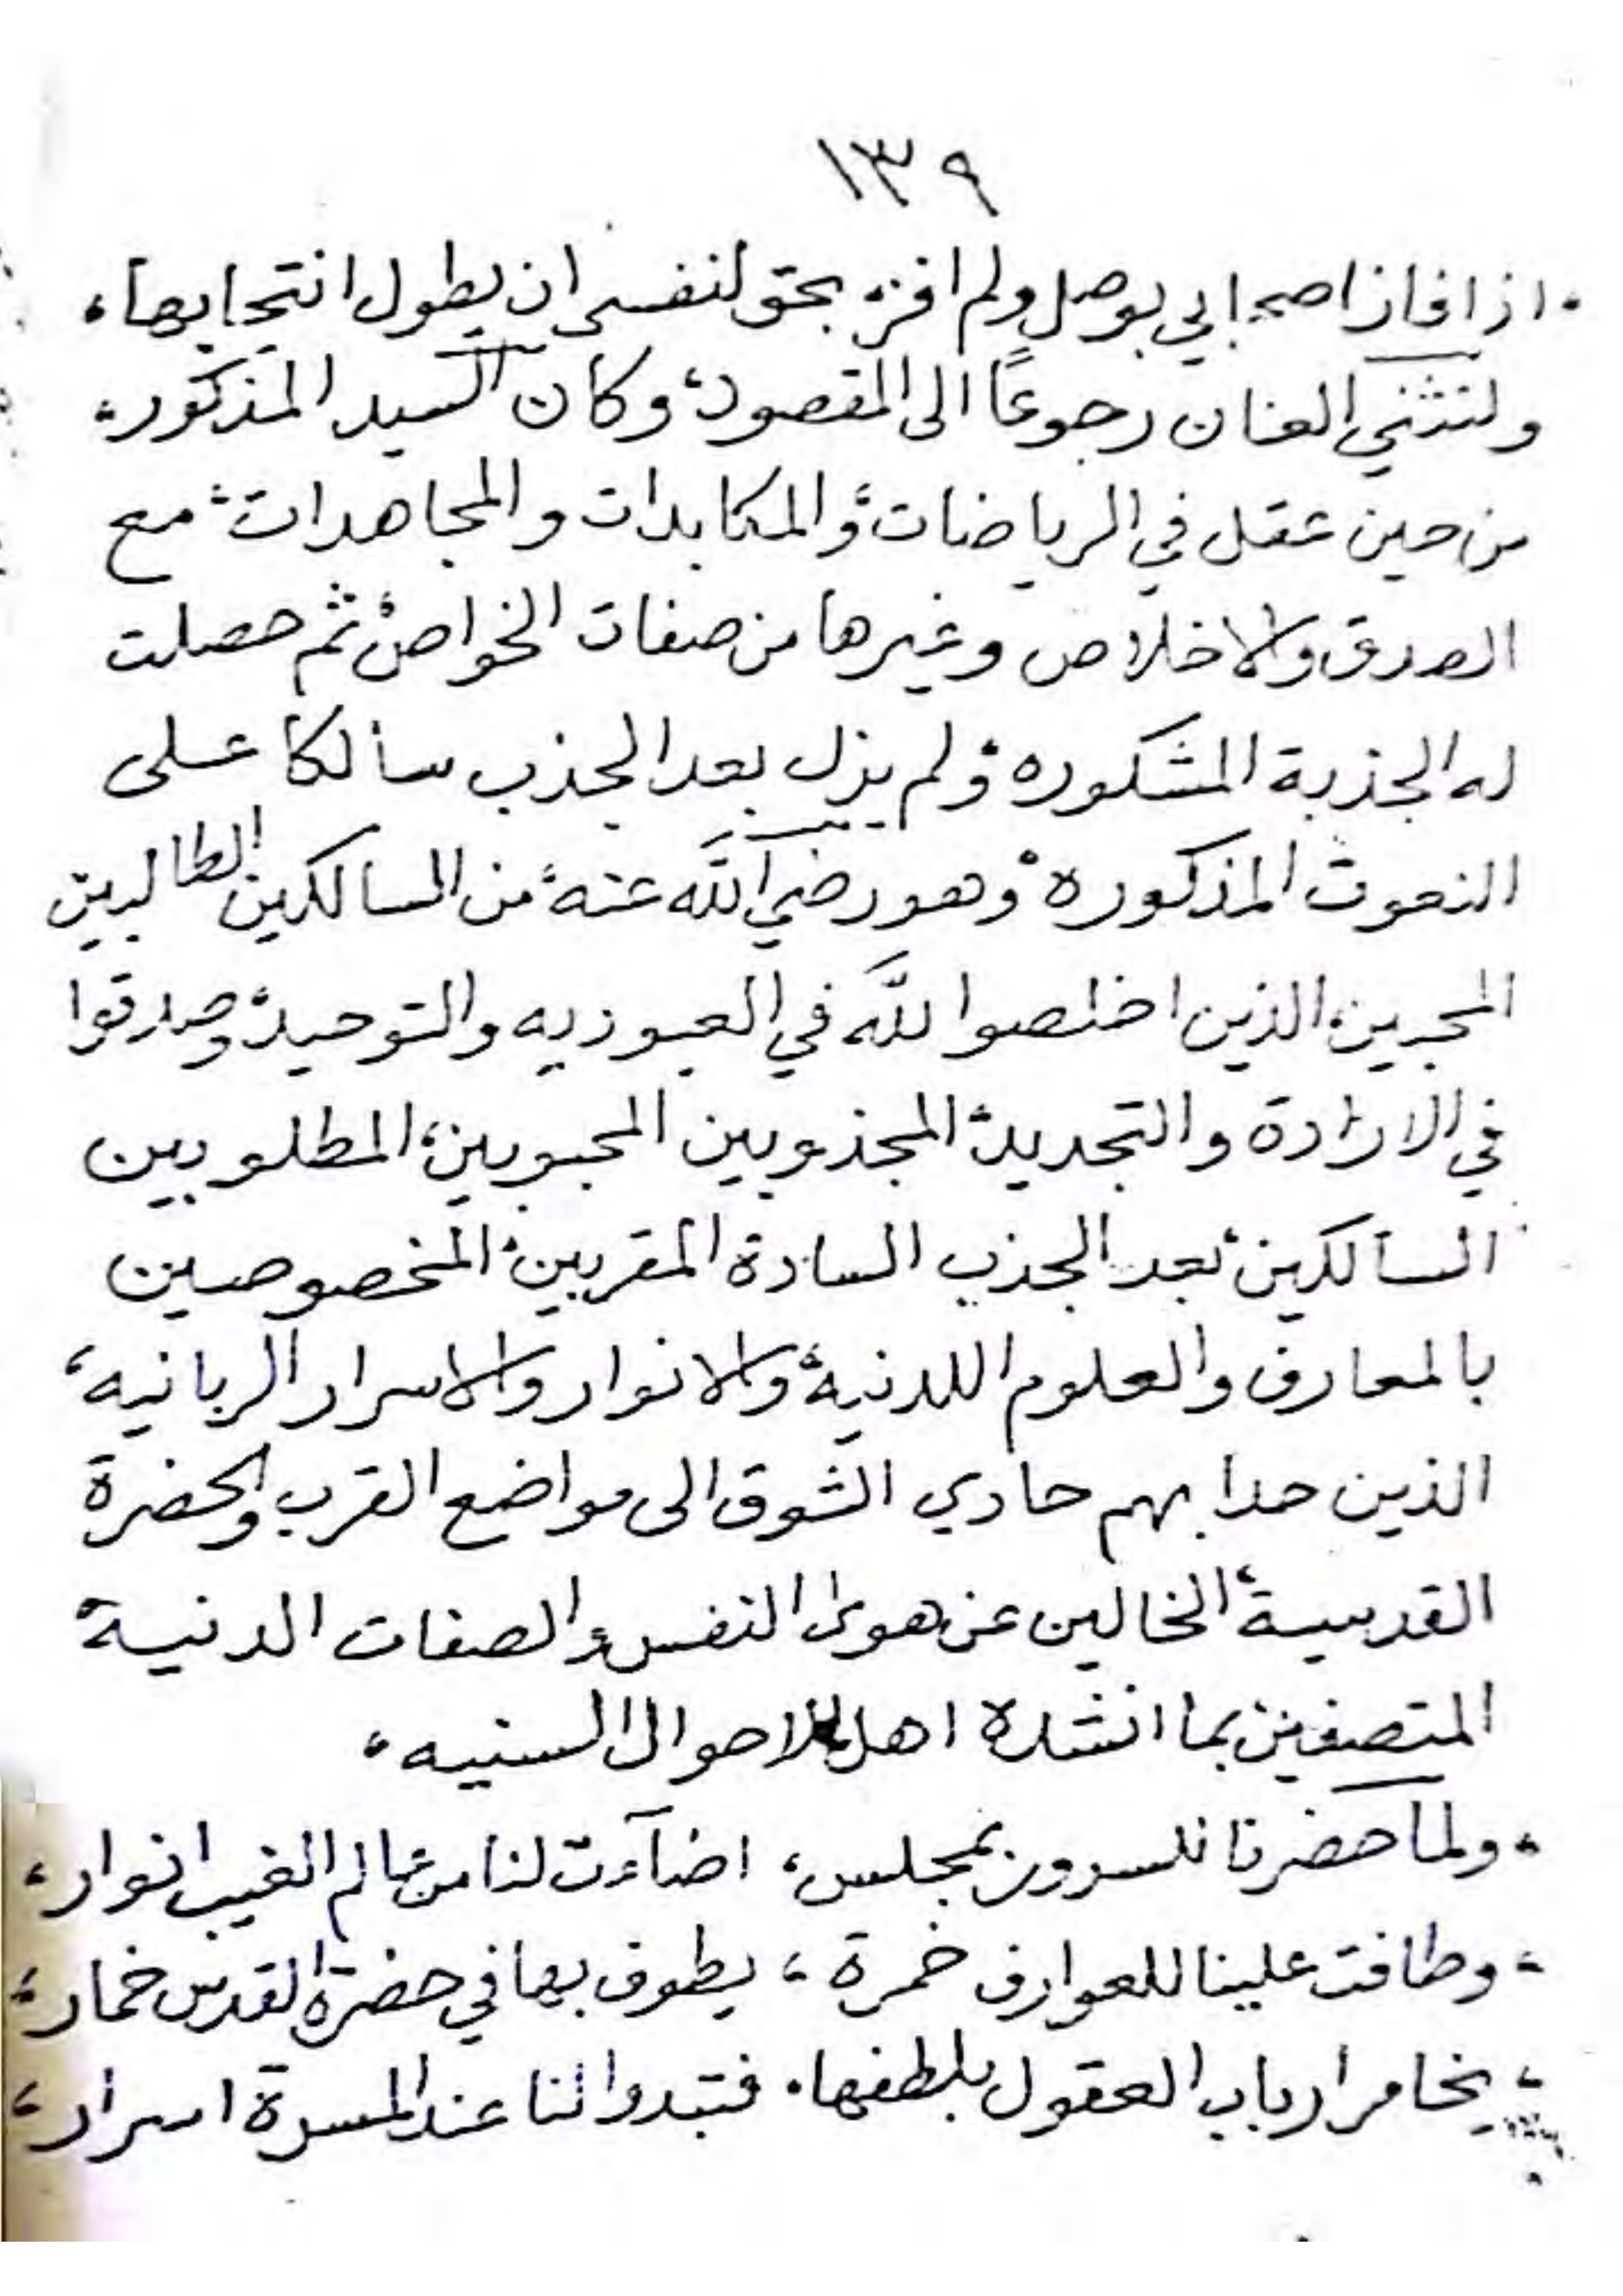 ١٣٩
اذا فاز اصحابي بوصل ولم افز، بحق لنفسي ان يطول انتحابها،
ولنثني العنان رجوعًا الى المقصود، وكان السيد المذكور،
من حين عقل في الرياضات، والمكابدات والمجاهدات، مع
الصدق والاخلاص وغيرها من صفات الخواص، ثم حصلت
له الجذبة المشكوره، ولم يزل بعد الجذب سالكا على
النعوت المذكوره، وهو رضي الله عنه، من السالكين الطالبين
المحبين، الذين اخلصوا لله في العبوديه والتوحيد، وصدقوا
في الارادة والتجريد، المجذوبين المحبوبين، المطلوبين
السالكين، بعد الجذب السادة المقربين، المخصوصين
بالمعارف والعلوم اللدنية، والانوار والاسرار الربانيه،
الذين حدا بهم حادي الشوق الى مواضع القرب والحضرة
القدسية، الخالين عن هوى النفس والصفات الدنية،
المتصفين بما انشده اهل الاحوال السنيه،
ولما حضرنا للسرور بمجلس، اضآءت لنا من عالم الغيب انوار،
وطافت علينا للعوارف خمرة، يطوف بها في حضرة القدس خمار،
يخامر ارباب العقول بلطفها. فتبدوا لنا عند المسرة اسرار،